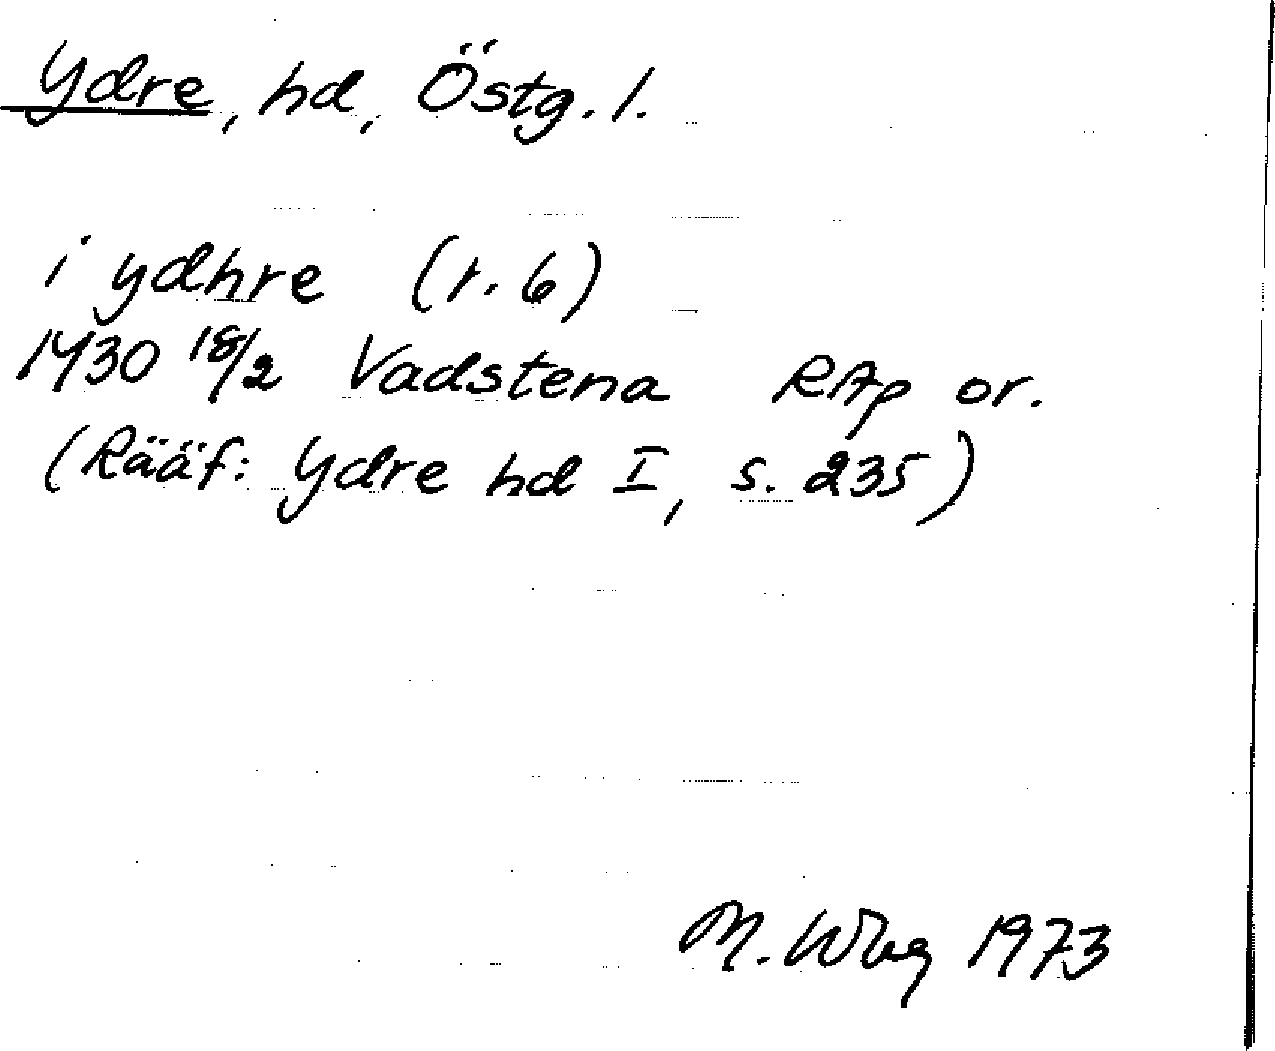 Ydre, hd, Östg. l.
i ydhre (r. 6)
1430 18/2 Vadstena RAp or.
(Rääf: Ydre hd I, s. 235)
M. Wbg 1973